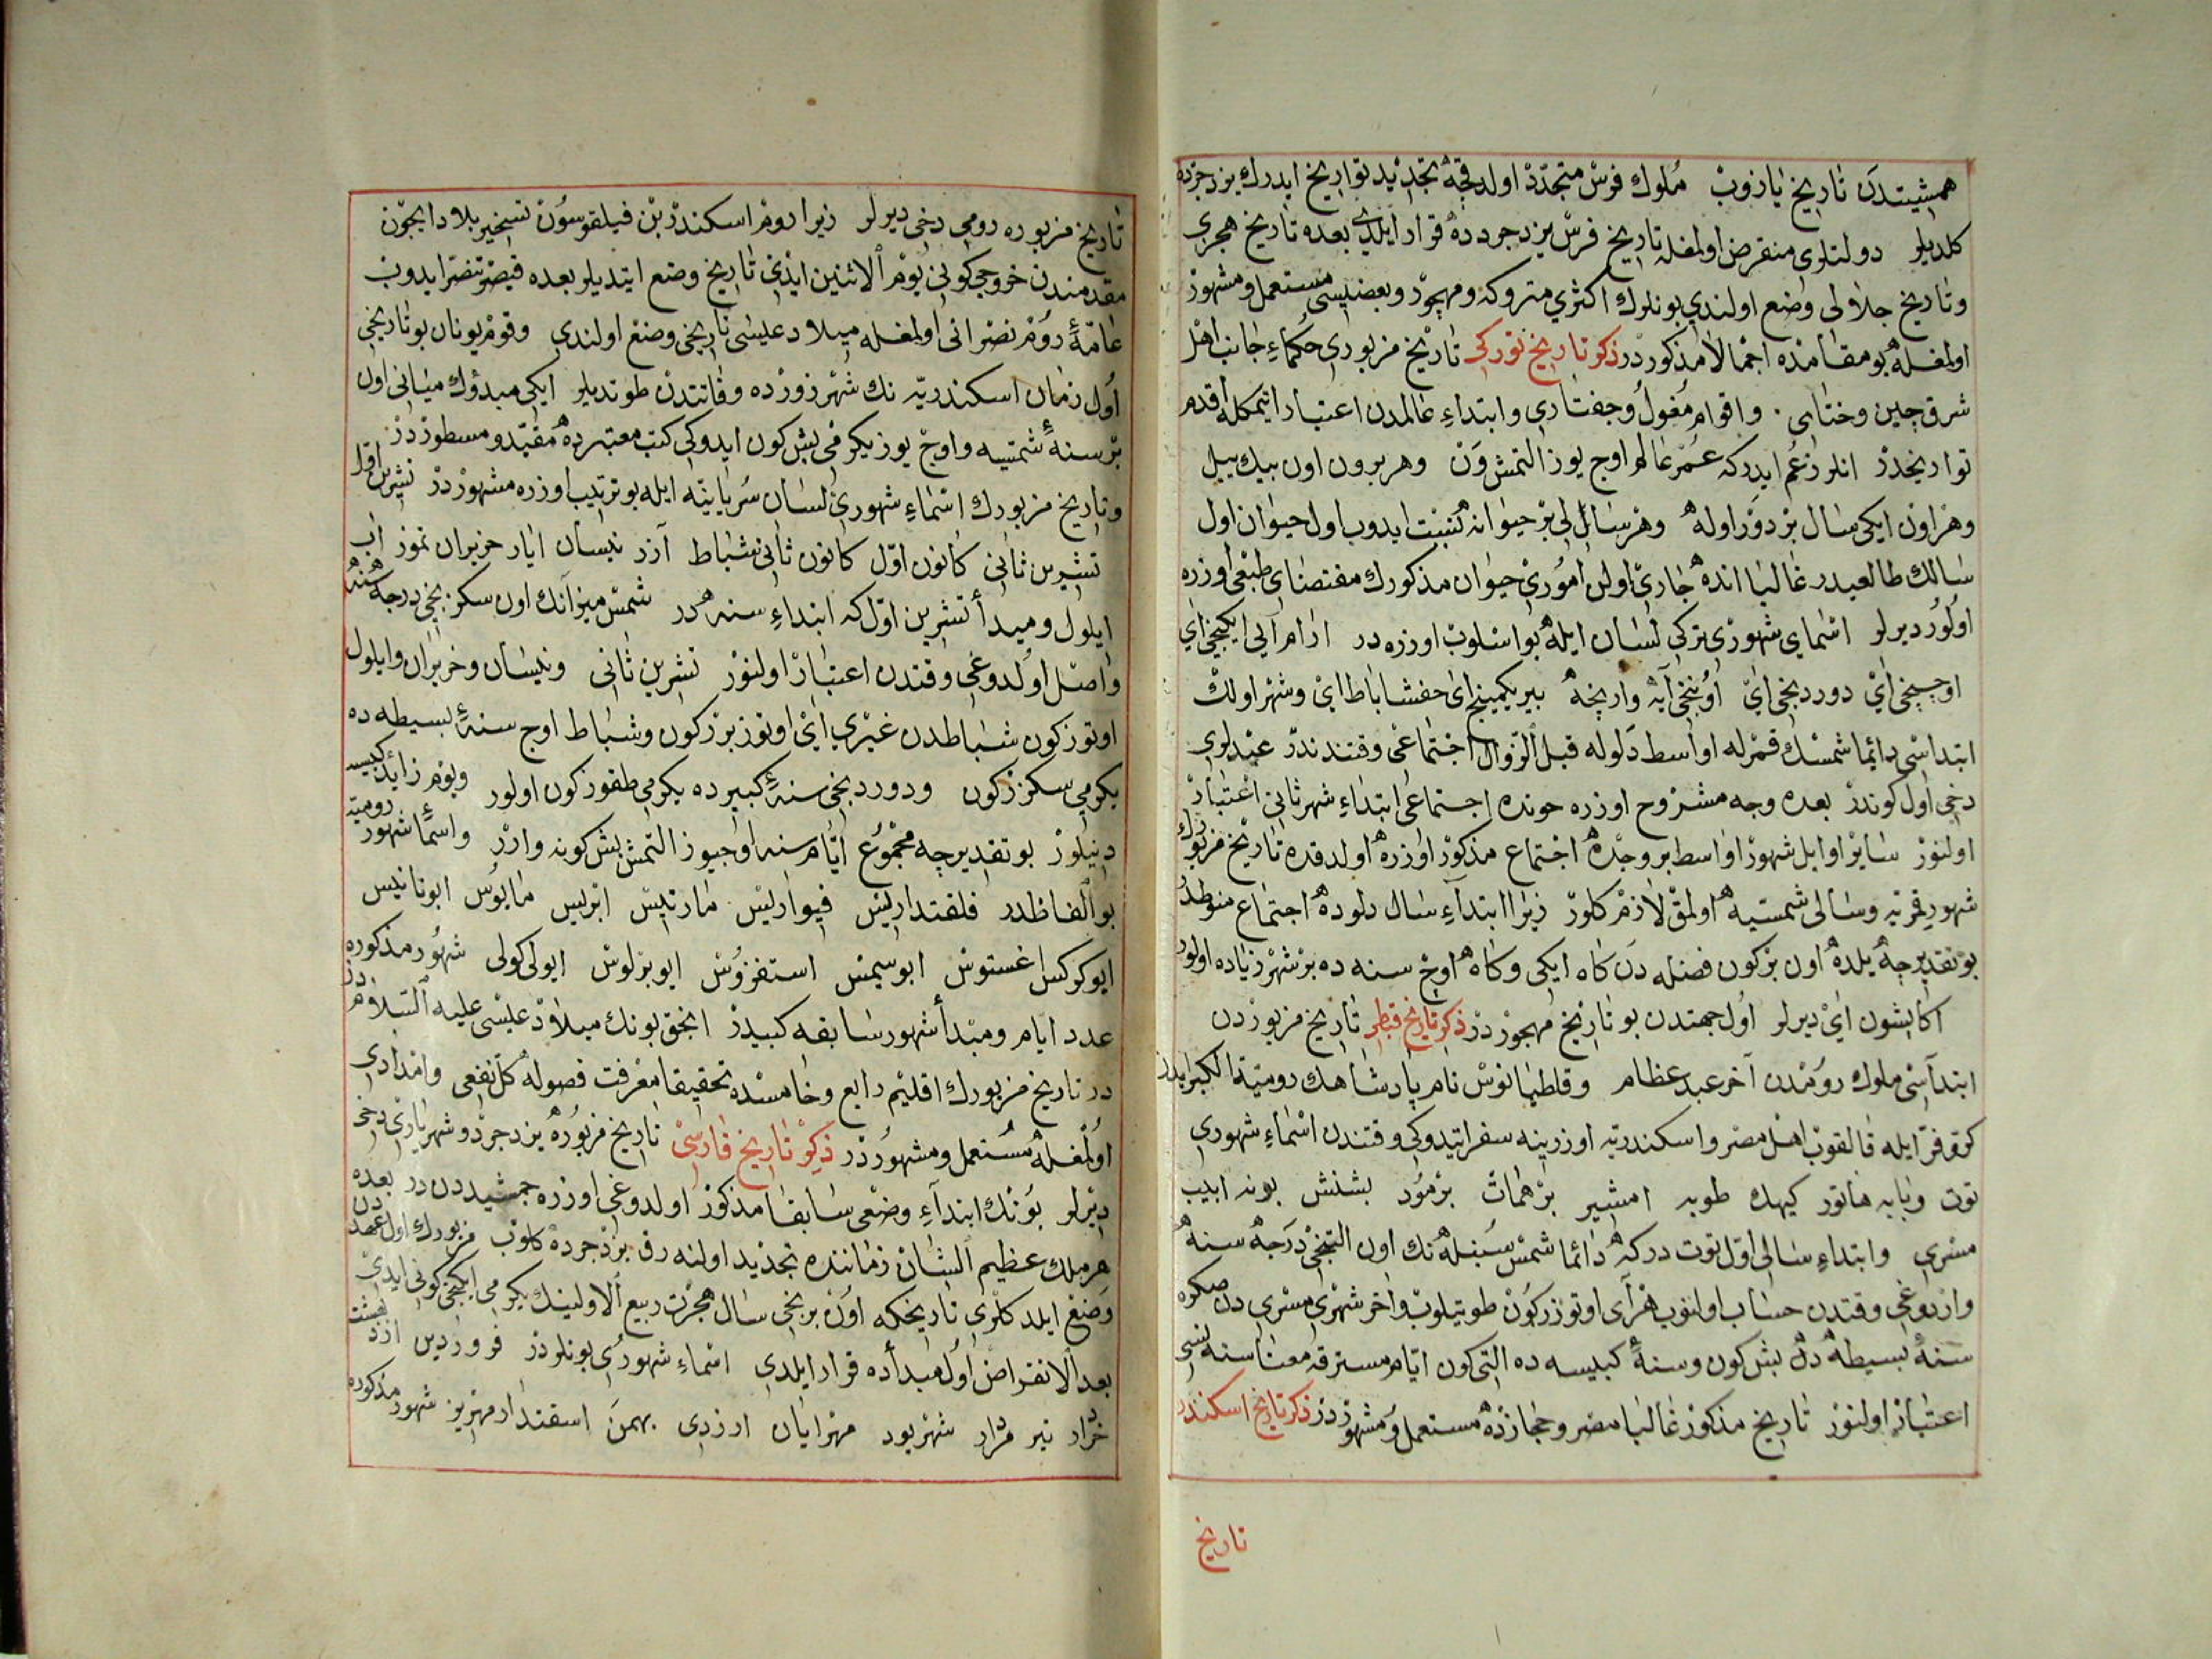 همشیتدن تاریخ یازوب ملوك فرس متجدّد اولدقچه تجدید تواریخ ایدرك یزدجرده
كلدیلر دولتلری منقرض اولمغله تاریخ فرس یزدجردده قرار ایلدی بعده تاریخ هجری
وتاریخ جلالی وضع اولندی بونلرك اكثری متروكه ومهجور وبعضیسی مستعمل ومشهور
اولمغله بو مقامده اجمالا مذكوردر ذكر تاریخ توركی تاریخ مزبوری حكماءِ جانب اهل
شرق چین وختای . واقوام مغول وجفتاری وابتداءِ عالمدن اعتبار ایتمكله اقدم
تواریخدر انلر زعم ایدركه عمر عالم اوچ یوز التمش وَن وهر برون اون بیك ییل
وهر اون ایكی سال بر دور اوله وهر سالی بر حیوانه نسبت ایدوب اول حیوان اول
سالك طالعیدر غالبا انده جاری اولن اموری حیوان مذكورك مقتضای طبعی اوزره
اولور دیرلر اسمای شهوری تركی لسان ایله بو اسلوب اوزره در ارام آیی ایكینجی آی
اوچنجی آی دوردنجی آی اوننجی آیه وارنجه بیریكمینج ای حفشاباط ای وشهر اولك
ابتداسی دائما شمسك قمرله اواسط دلوله قبل الزوال اجتماعی وقتندندر عیدلری
دخی اول كوندر بعده وجه مشروح اوزره حوتده اجتماعی ابتداءِ شهر ثانی اعتبار
اولنور سایر اوایل شهور اواسط بروجده اجتماع مذكور اوزره اولدقده تاریخ مزبورك
شهور قمریه وسالی شمسیه اولمق لازم كلور زیرا ابتداءِ سال دلوده اجتماع منوطدر
بو تقدیرجه یلده اون بر كون فضله دن كاه ایكی وكاه اوچ سنه ده بر شهر زیاده اولور
اكا بشون آی دیرلر اول جهتدن بو تاریخ مهجوردر ذكر تاریخ قبطی تاریخ مزبوردن
ابتداسی ملوك رومدن آخر عبد عظام وقلطیانوس نام پادشاهك رومیة الكبرادن
كر وفر ایله قالقوب اهل مصر واسكندریه اوزرینه سفر ایتدوكی وقتندن اسماءِ شهوری
توت وبابه هاتور كیهك طوبه امشیر برهمات برمود بشنش بونه ابیب
مسری وابتداءِ سالی اوّل توت دركه دائما شمس سنبله نك اون التنجی درجه سنه
واردوغی وقتدن حساب اولنوب هر آی اوتوز كون طوتیلوب واخر شهری مسری دن صكره
سنهٔ بسیطه ده بش كون وسنهٔ كبیسه ده التی كون ایام مسترقه معناسنه نسی
اعتبار اولنور تاریخ مذكور غالبا مصر وحجازده مستعمل ومشهوردر ذكر تاریخ اسكندر
تاریخ
تاریخ مزبوره رومی دخی دیرلر زیرا روم اسكندر بن فیلقوسون تسخیر بلاد ایچون
مقدمندن خروجی كونی یوم الاثنین ایدی تاریخ وضع ایتدیلر بعده قیصر تنصر ایدوب
عامّهٔ روم نصرانی اولمغله میلاد عیسی تاریخی وضع اولندی وقوم یونان بو تاریخی
اول زمان اسكندریه نك شهر زورده وفاتندن طوتدیلر ایكی مبدؤك میانی اول
بر سنهٔ شمسیه واوچ یوز یكرمی بش كون ایدوكی كتب معتبره ده مقیّد ومسطوردر
وتاریخ مزبورك اسماءِ شهوری لسان سریانیّه ایله بو ترتیب اوزره مشهوردر تشرین اوّل
تشرین ثانی كانون اوّل كانون ثانی شباط آزر نیسان ایار حزیران تموز اب
ایلول ومبدأ تشرین اوّل كه ابتداءِ سنه در شمس میزانك اون سكزنجی درجه سنه
واصل اولدوغی وقتدن اعتبار اولنور تشرین ثانی ونیسان وخزیران وایلول
اوتوز كون شباطدن غیری آی اوتوز بر كون وشباط اوچ سنهٔ بسیطه ده
یكرمی سكز كون ودوردنجی سنهٔ كبیرده یكرمی طقوز كون اولور ویوم زائد كبیسه
دینلور بو تقدیرجه مجموع ایام سنه اوچیوز التمش بش كونه وارر واسماءِ شهور رومیّه
بو الفاظدر فلقنداریس فیواریس مارتیس ابریس مایوس ابونانیس
ایوكركس اغستوس ابوسیمس استفزوس ایوبرلوس ایولی كولی شهور مذكوره در
عدد ایام ومبدأ شهور سابقه كبیدر انجق بونك میلاد عیسی علیه السلام
در تاریخ مزبورك اقلیم رابع وخامسده تحقیقا معرفت فصوله كل نفعی وامدادی
اولمغله مستعمل ومشهوردر ذكر تاریخ فارسی تاریخ مزبوره یزدجرد وشهریاری دخی
دیرلر بونك ابتداءِ وضعی سابقا مذكور اولدوغی اوزره جمشیددن در بعده
هر ملك عظیم الشان زماننده تجدید اولنه رق یزدجرده كلوب مزبورك اول عهددن
وضع ایلدكلری تاریخكه اون برنجی سال هجرت ربیع الاولینك یكرمی ایكنجی كونی ایدی
بعد الانقراض اول مبدأده قرار ایلدی اسماءِ شهوری بونلردر فروردین اردبهشت
خرداد تیر مرداد شهربود مهرایان ارزدی بهمن اسفندارمهریز شهور مذكوره